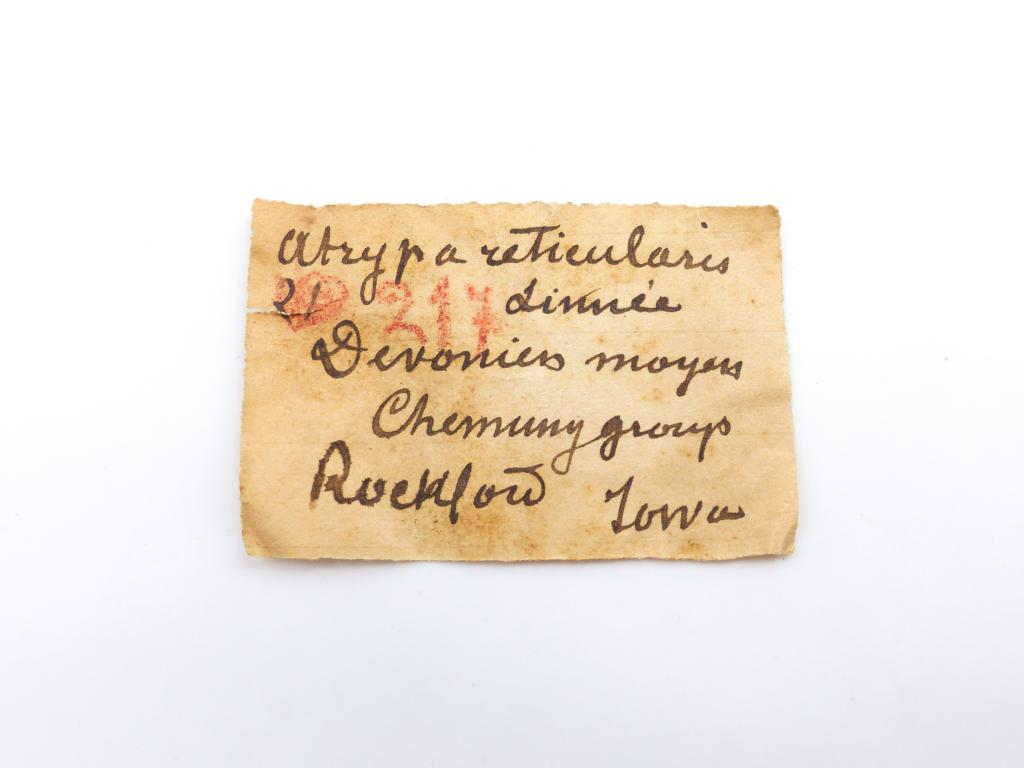 Atrypa reticularis
21 217 Linnée
Devonien moyen
Chemung group
Rockford Iowa